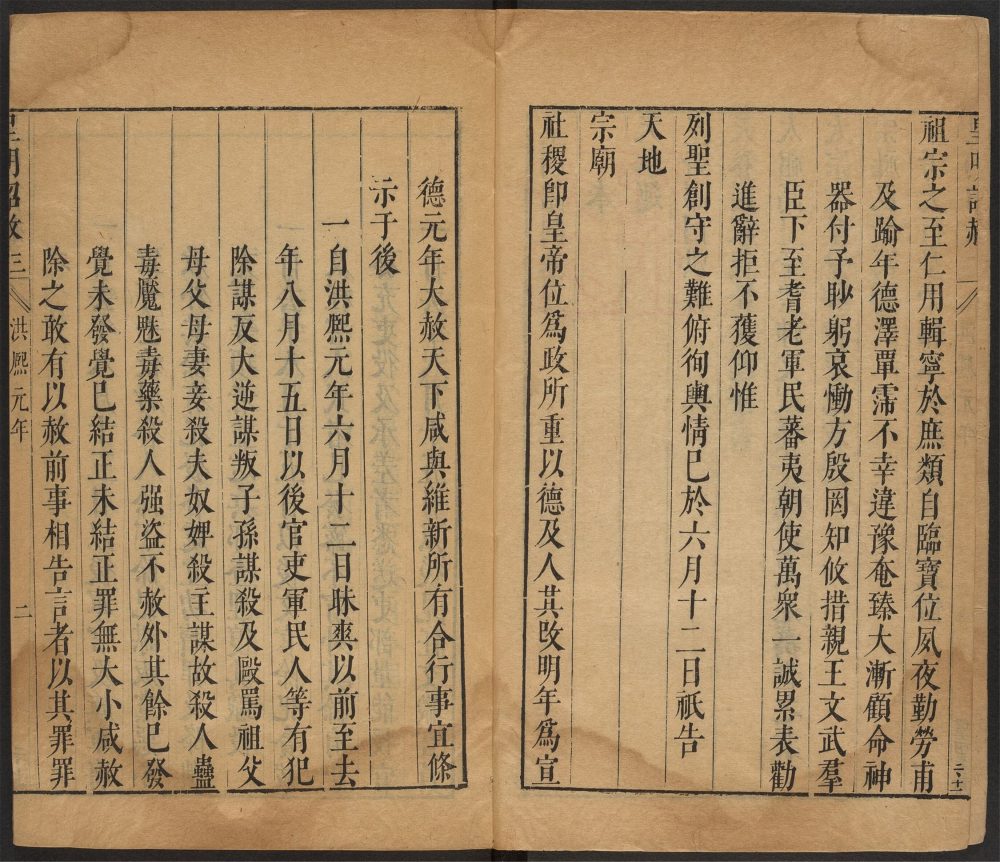 祖宗之至仁用輯寧於庶類自臨寶位夙夜勤勞甫
及踰年德澤覃霈不幸違豫奄臻大漸顧命神
器付予眇躬哀慟方殷罔知攸措親王文武羣
臣下至耆老軍民蕃夷朝使萬衆一誠累表勸
進辭拒不獲仰惟
列聖創守之難俯徇輿情已於六月十二日祗告
天地
宗廟
社稷即皇帝位爲政所重以德及人其改明年爲宣
德元年大赦天下咸與維新所有合行事宜條
示于後
一自洪熈元年六月十二日昧爽以前至去
年八月十五日以後官吏軍民人等有犯
除謀反大逆謀叛子孫謀殺及毆罵祖父
母父母妻妾殺夫奴婢殺主謀故殺人蠱
毒魘魅毒藥殺人强盜不赦外其餘已發
覺未發覺已結正未結正罪無大小咸赦
除之敢有以赦前事相告言者以其罪罪
三 洪熈元年 二